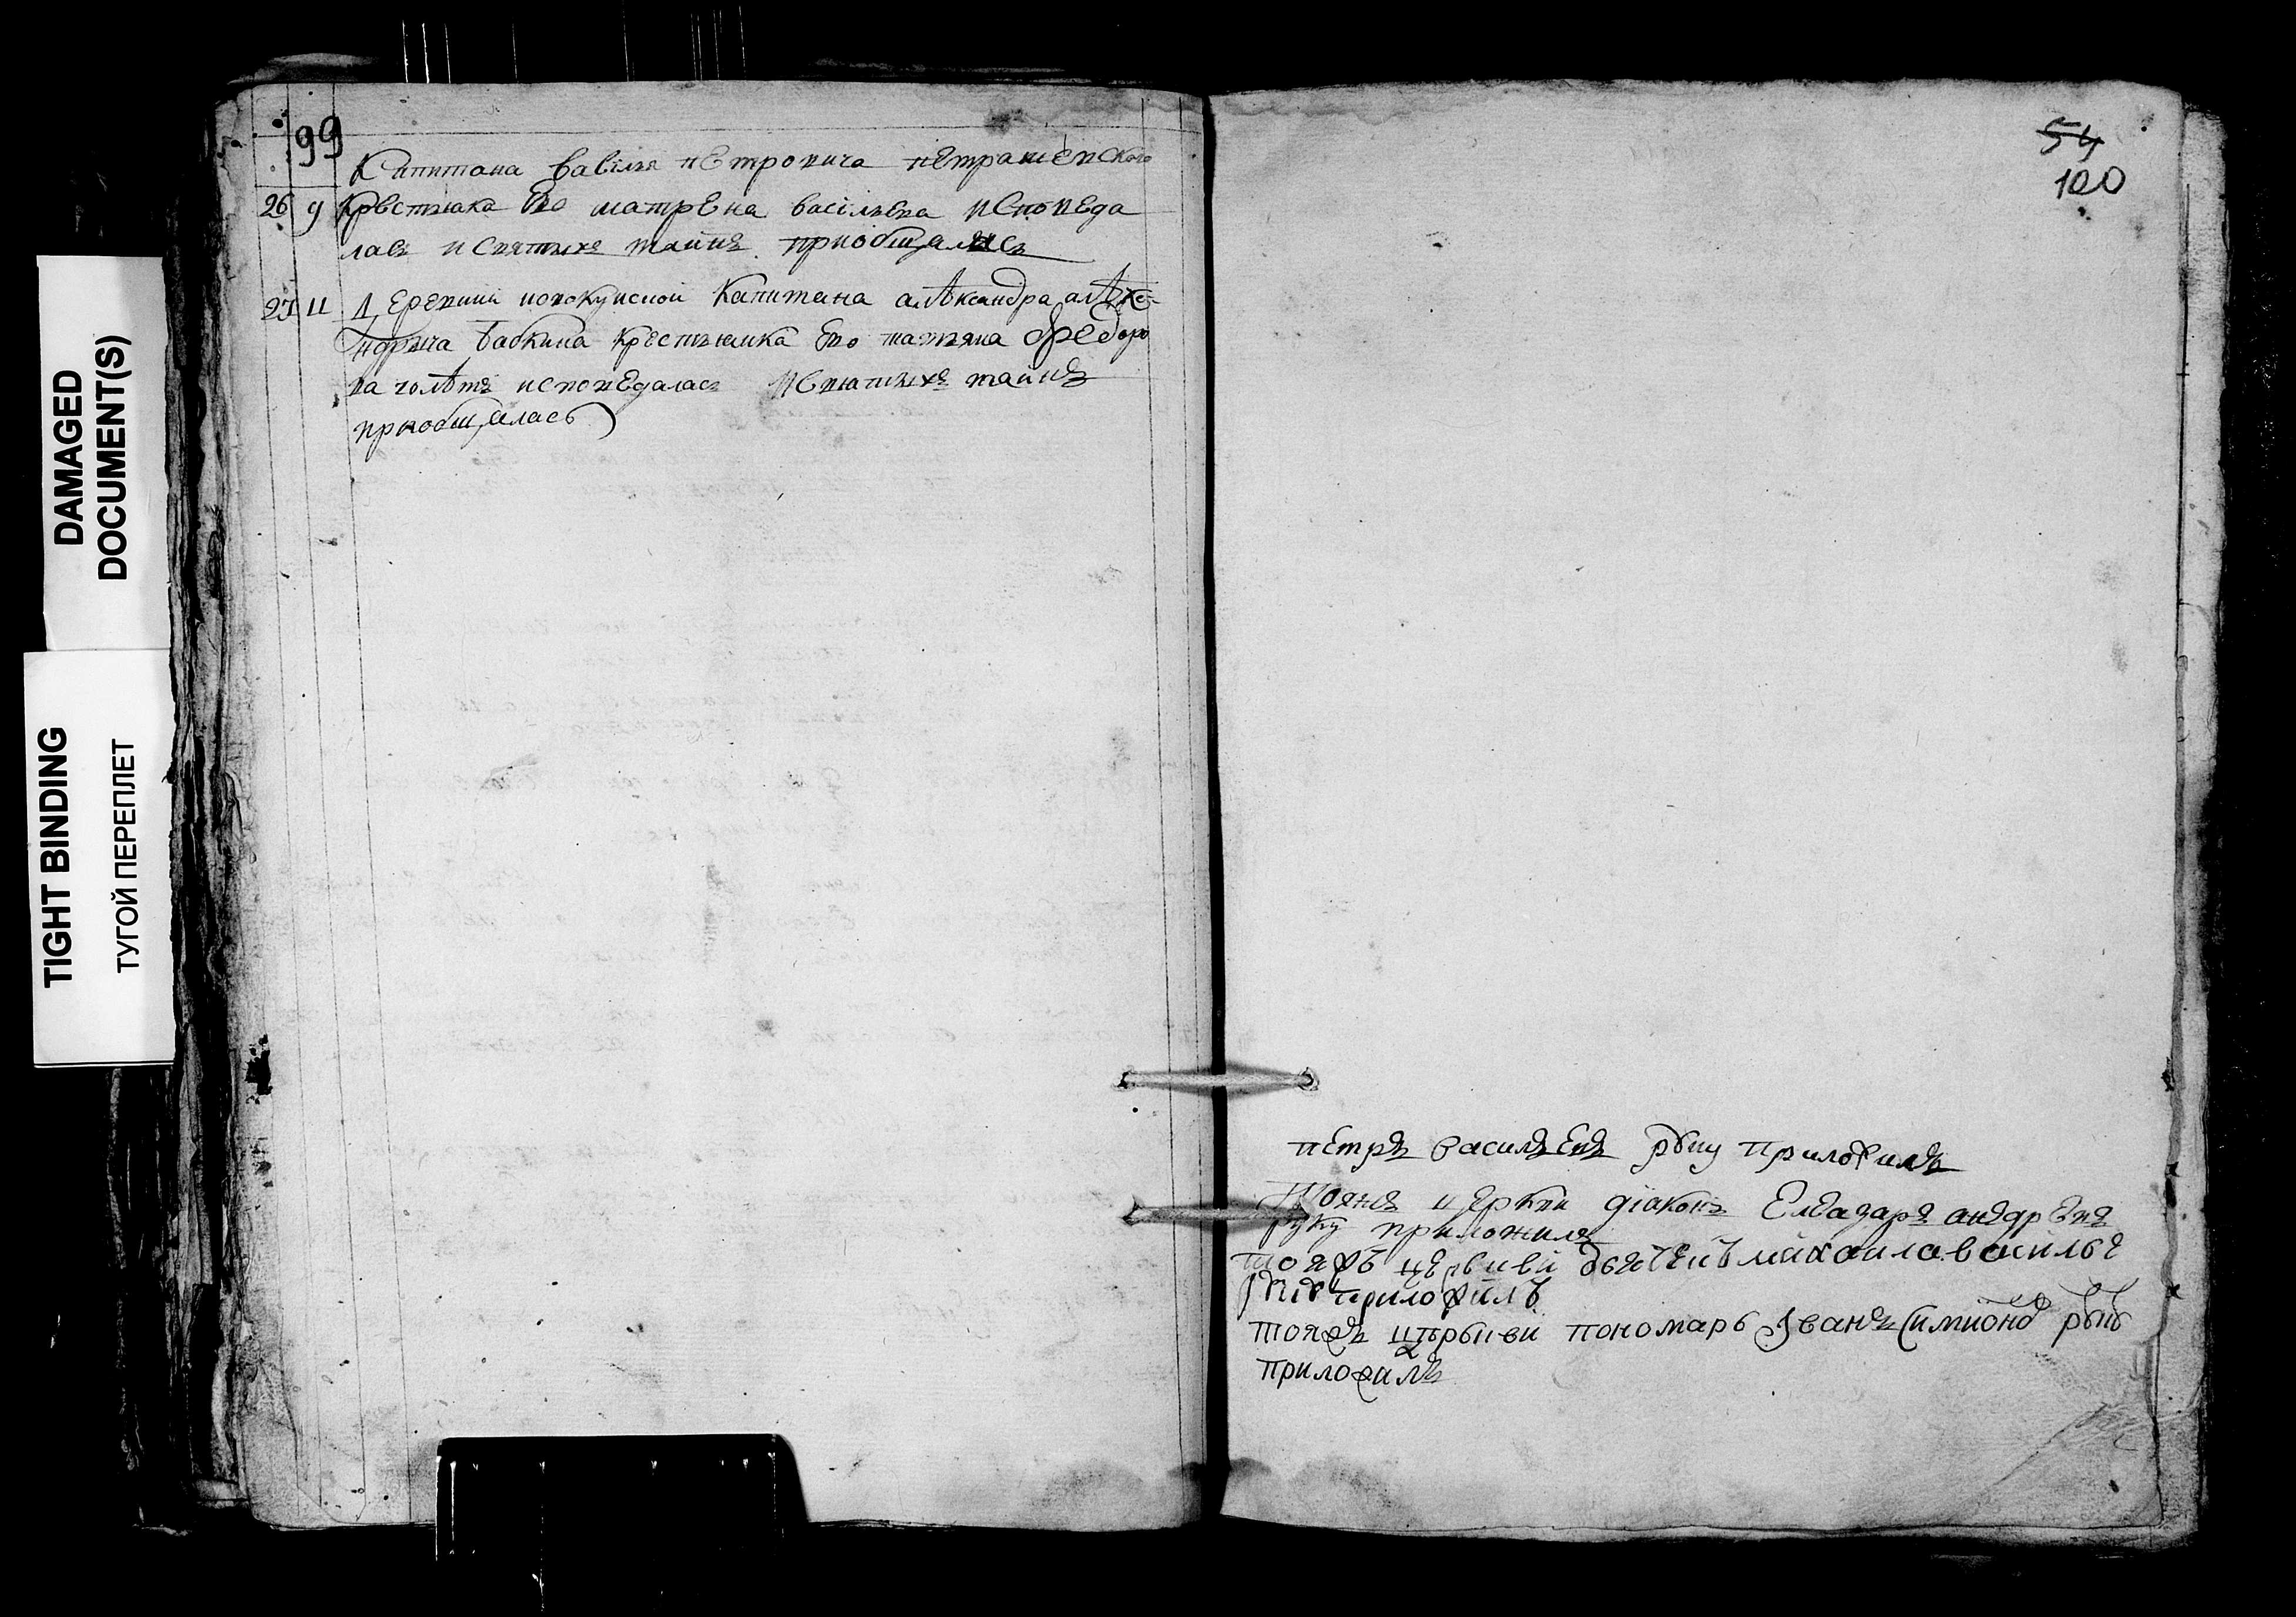 DAMAGED
DOCUMENT(S)
TIGHT BINDING
ТУГОЙ ПЕРЕПЛЕТ
99
Капитана васілья петровича петрашевского
26 9 Крестьянка Ево матрена васільева исповеда
лась и святыхъ таинъ приобщалась
27 11 Деревни капитана алѣксандра
бабкина Ево татьяна Федоро
ва исповедалась и святыхъ таинъ
приобщалась
54
100
петръ васильевъ руку приложилъ
Тояжъ церкви діаконъ Елеазаръ анъдревъ
руку приложилъ
тояжъ церькви дьячекъ михаила василье
руку приложилъ
тояжъ церькви пономарь Iванъ Симионо руку
приложилъ